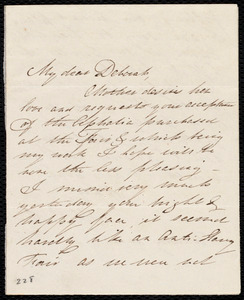 My dear Deborah,
Mother desires her
love and requests your acceptance
of the
purchased
at the Fair & which being
my work I hope will to
you the less pleasing -
I miss very much
yesterday your bright &
happy face, it seemed
hardly like an Anti-Slavery
Fair as in
228